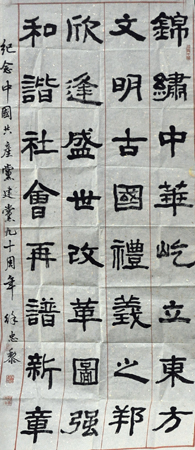 錦繡中華屹立東方
文明古國禮義之邦
欣逢盛世改革圖强
和諧社會再譜新章
紀念中國共產黨建黨九十周年 徐忠黎